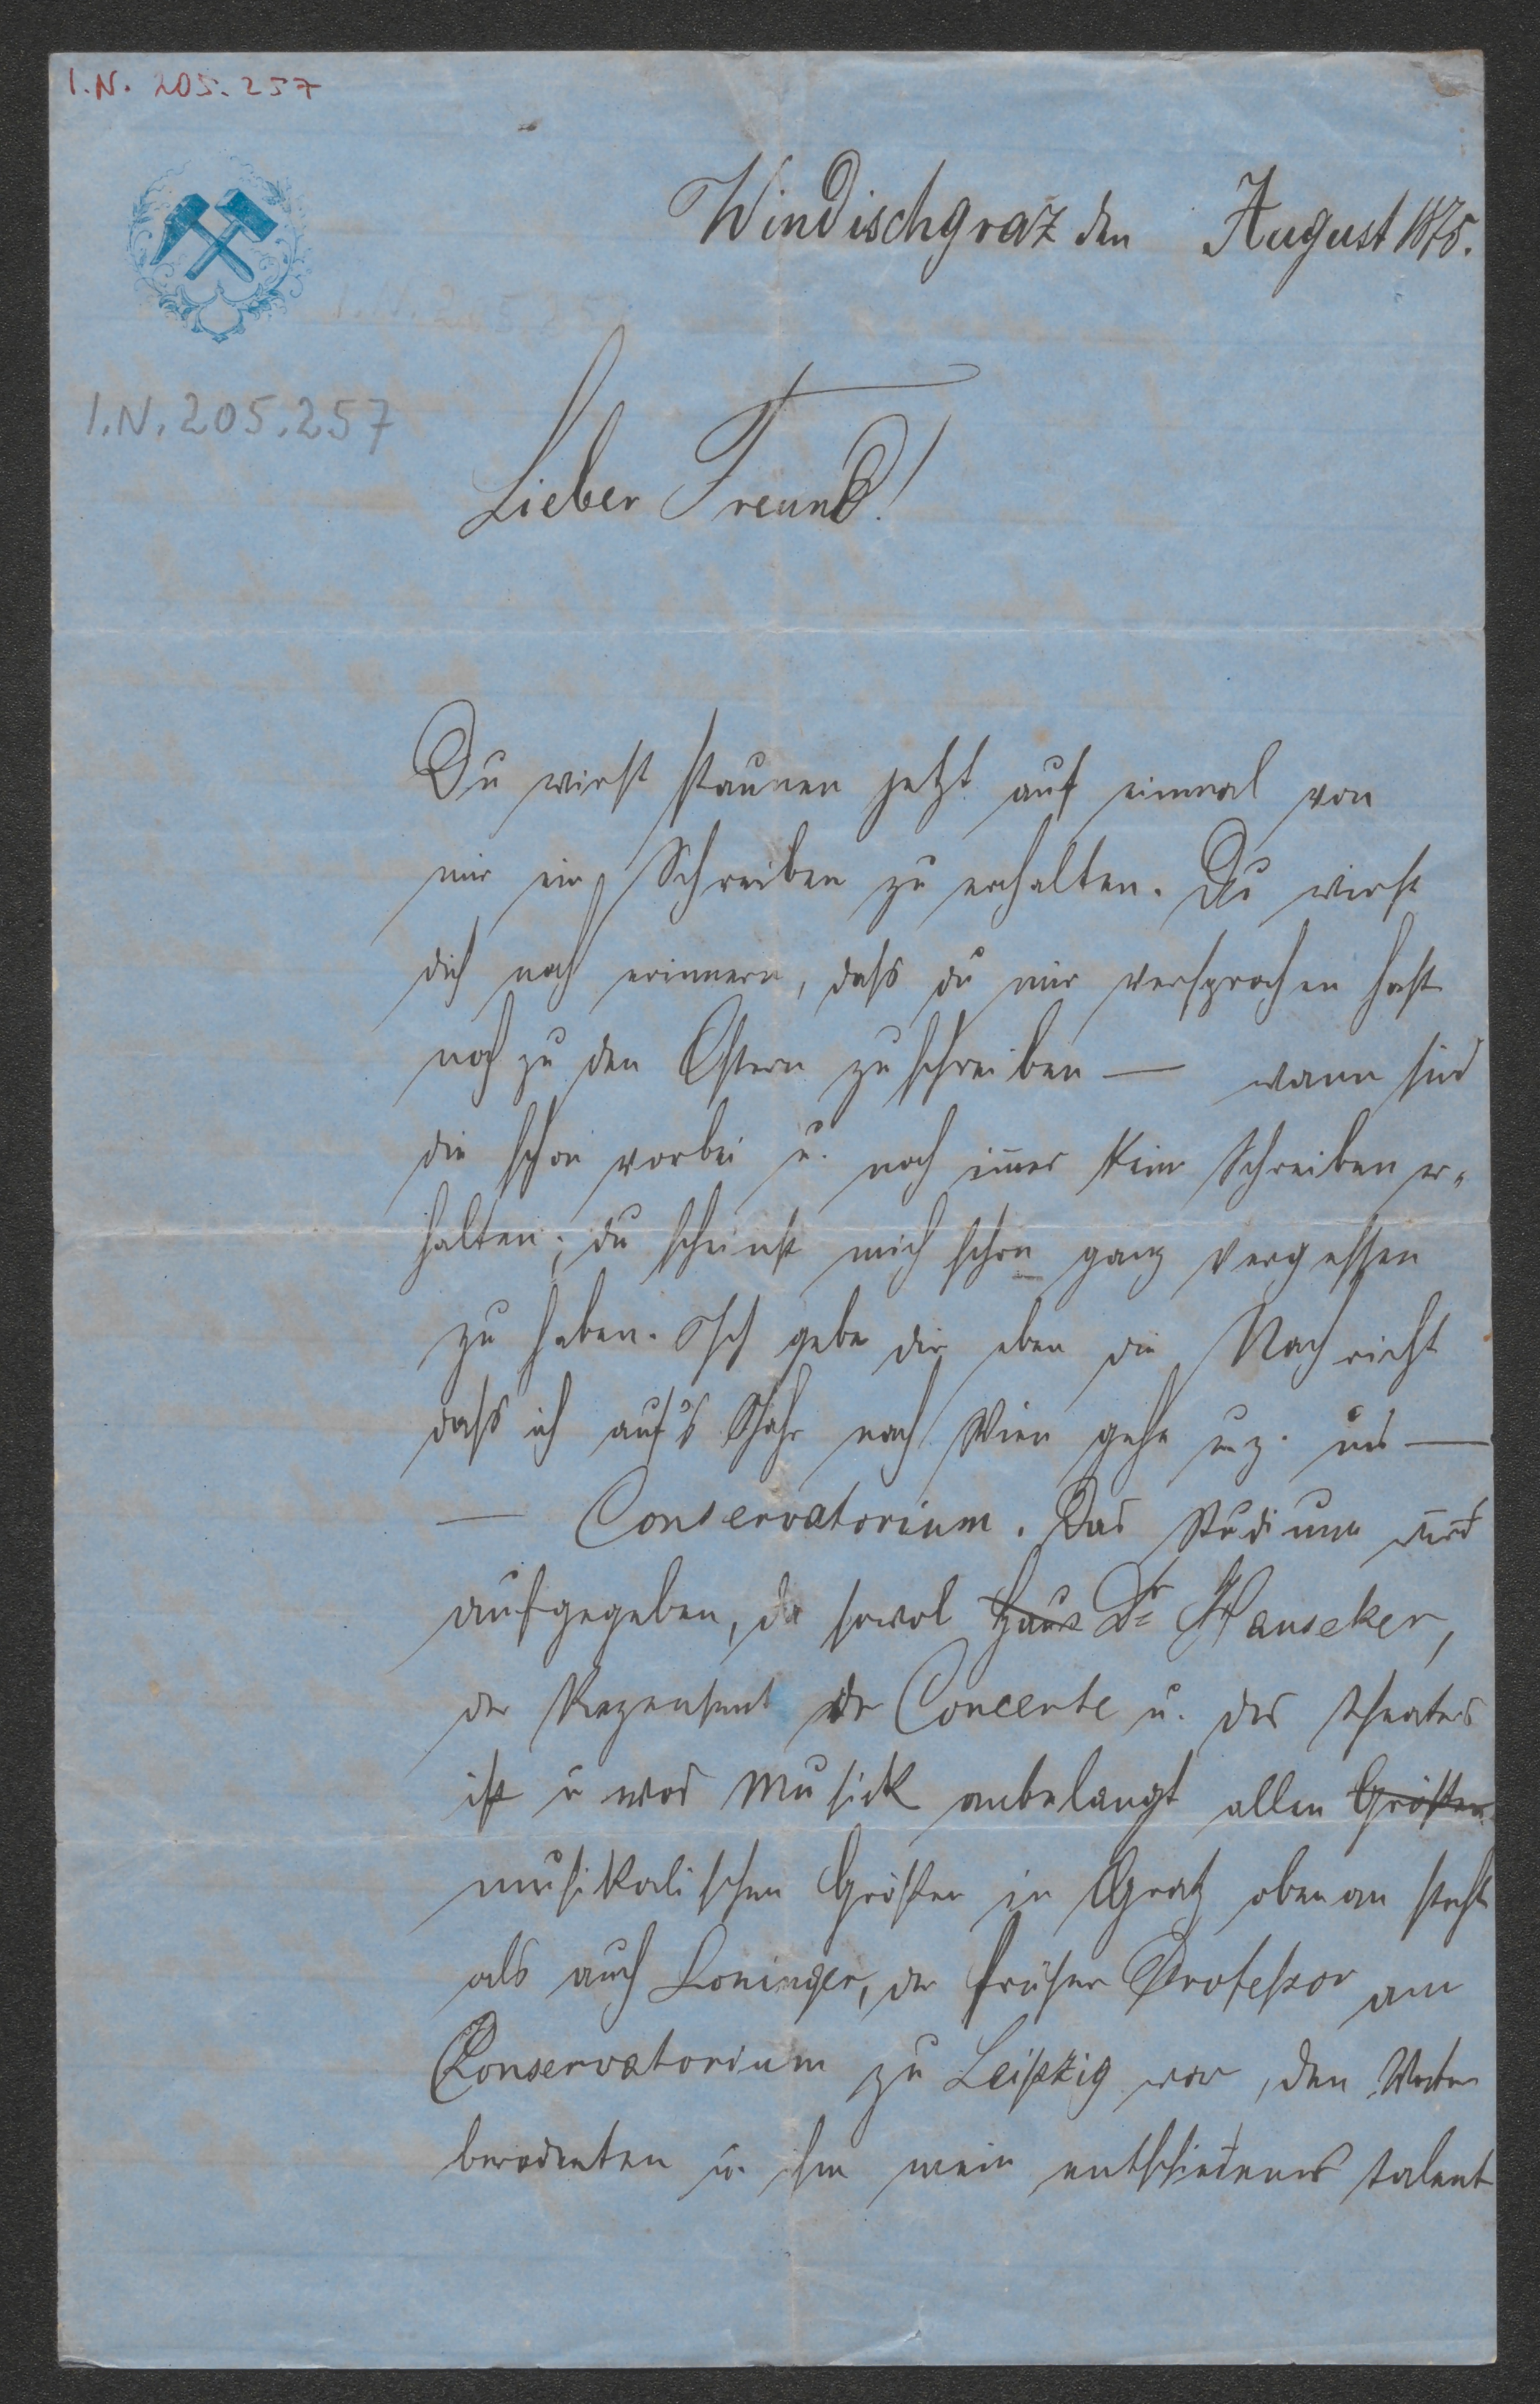 I.N. 205.257
Windischgraz den August 1875.
I.N. 205.257
Lieber Freund!
Du wirst staunen jetzt auf einmal von
mir ein Schreiben zu erhalten. Du wirst
dich noch erinnern, daß du mir versprochen hast
noch zu den Ostern zu schreiben — wann sind
die schon vorbei u. noch imer kein Schreiben er-
halten; du scheinst mich schon ganz vergessen
zu haben. Ich gebe dir eben die Nachricht
daß ich auf's Jahr nach Wien gehe uz. ins —
— Conservatorium. Das Studium wird
aufgegeben, da sowol Haus Dr Hauseker,
der Rezensent der Concerte u. des Theaters
ist u was Musick anbelangt allen Größen
musikalischen Größen in Gratz obenan steht
als auch Loninger, der früher Professor am
Conservatorium zu Leipzig war, den Vater
beredeten u. ihm mein entschiedenes Talent